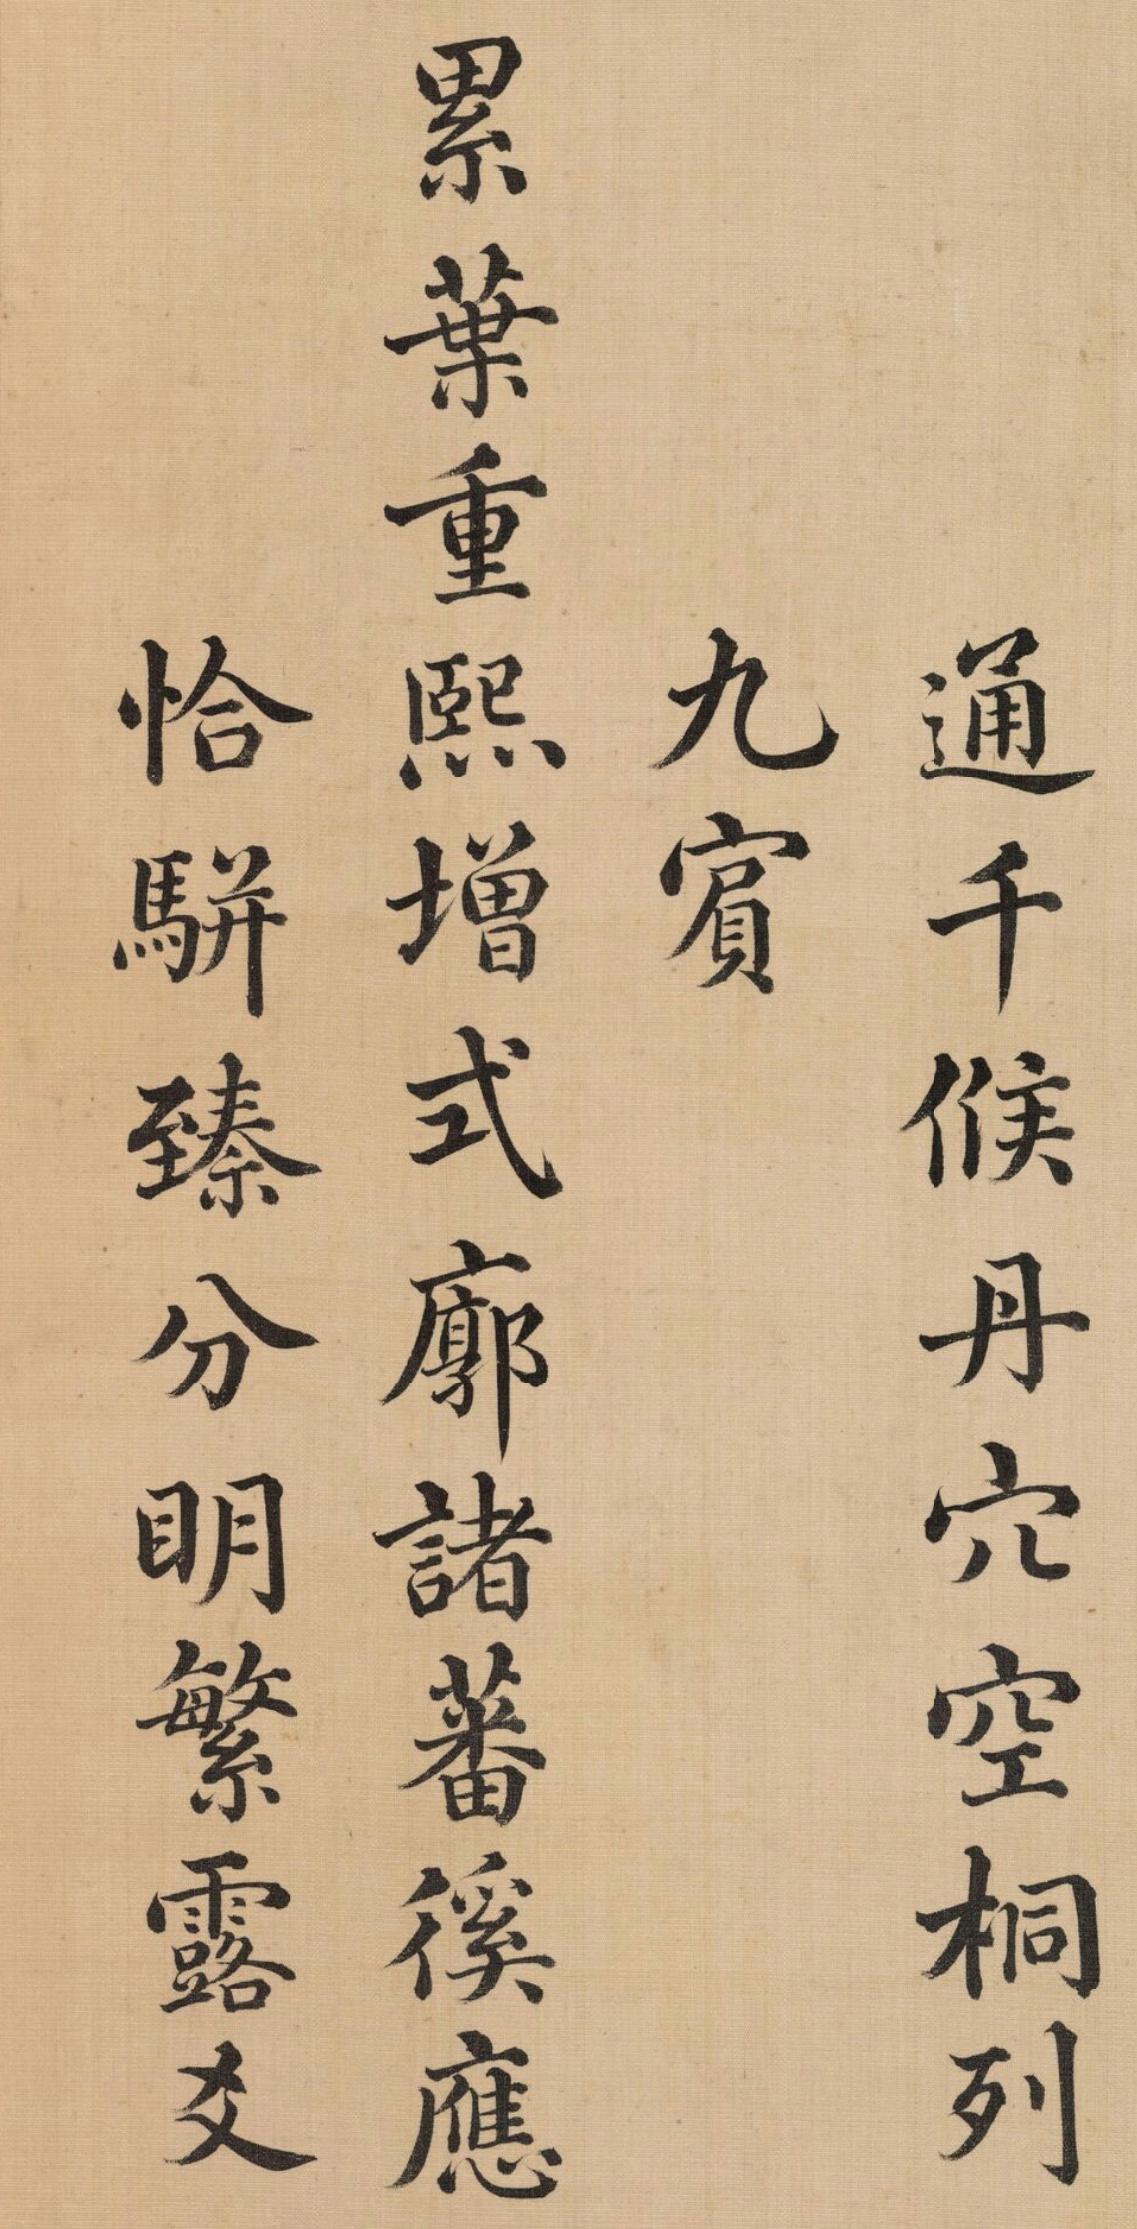 通千候丹穴空桐列
九賓
累葉重熙增式廓諸蕃徯應
恰駢臻分明繁露爻